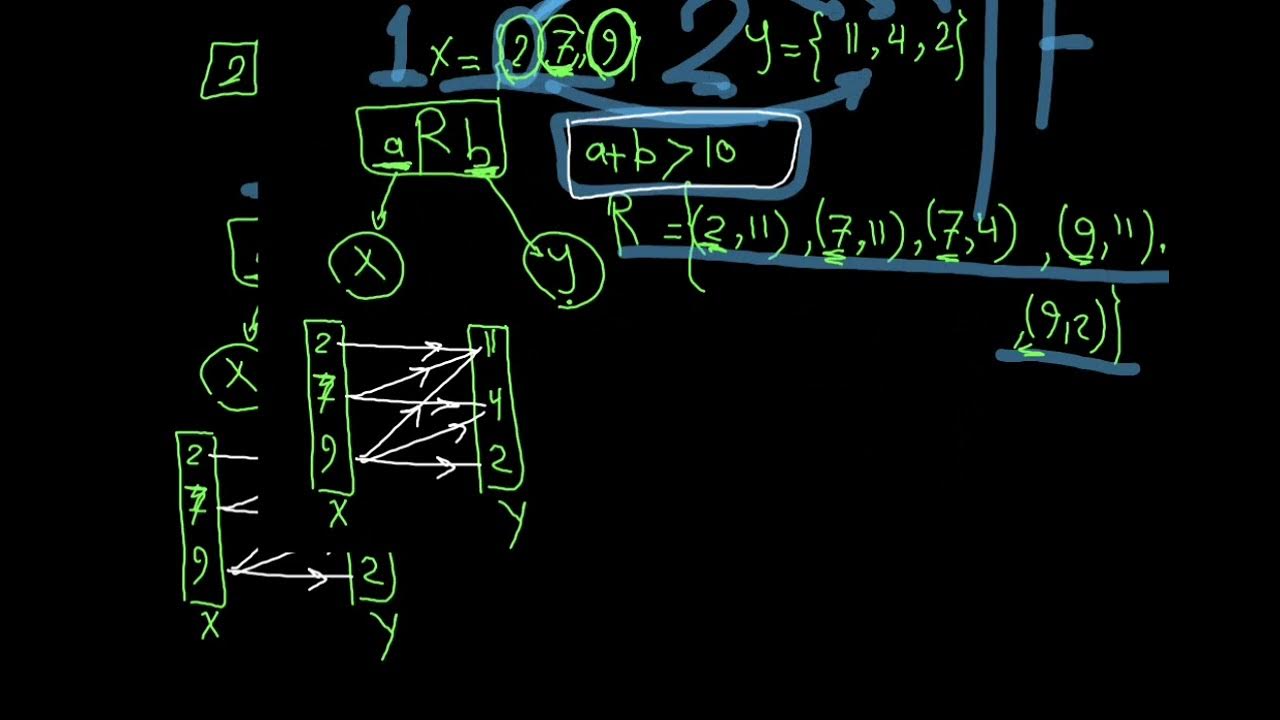 1 X = {2, 7, 9} 2 y = {11, 4, 2}
2
a R b
a + b > 10
R = {(2, 11), (7, 11), (7, 4), (9, 11),
, (9, 2)}
X y
2 11
7 4
9 2
X y
X
2
7
9 2
X y